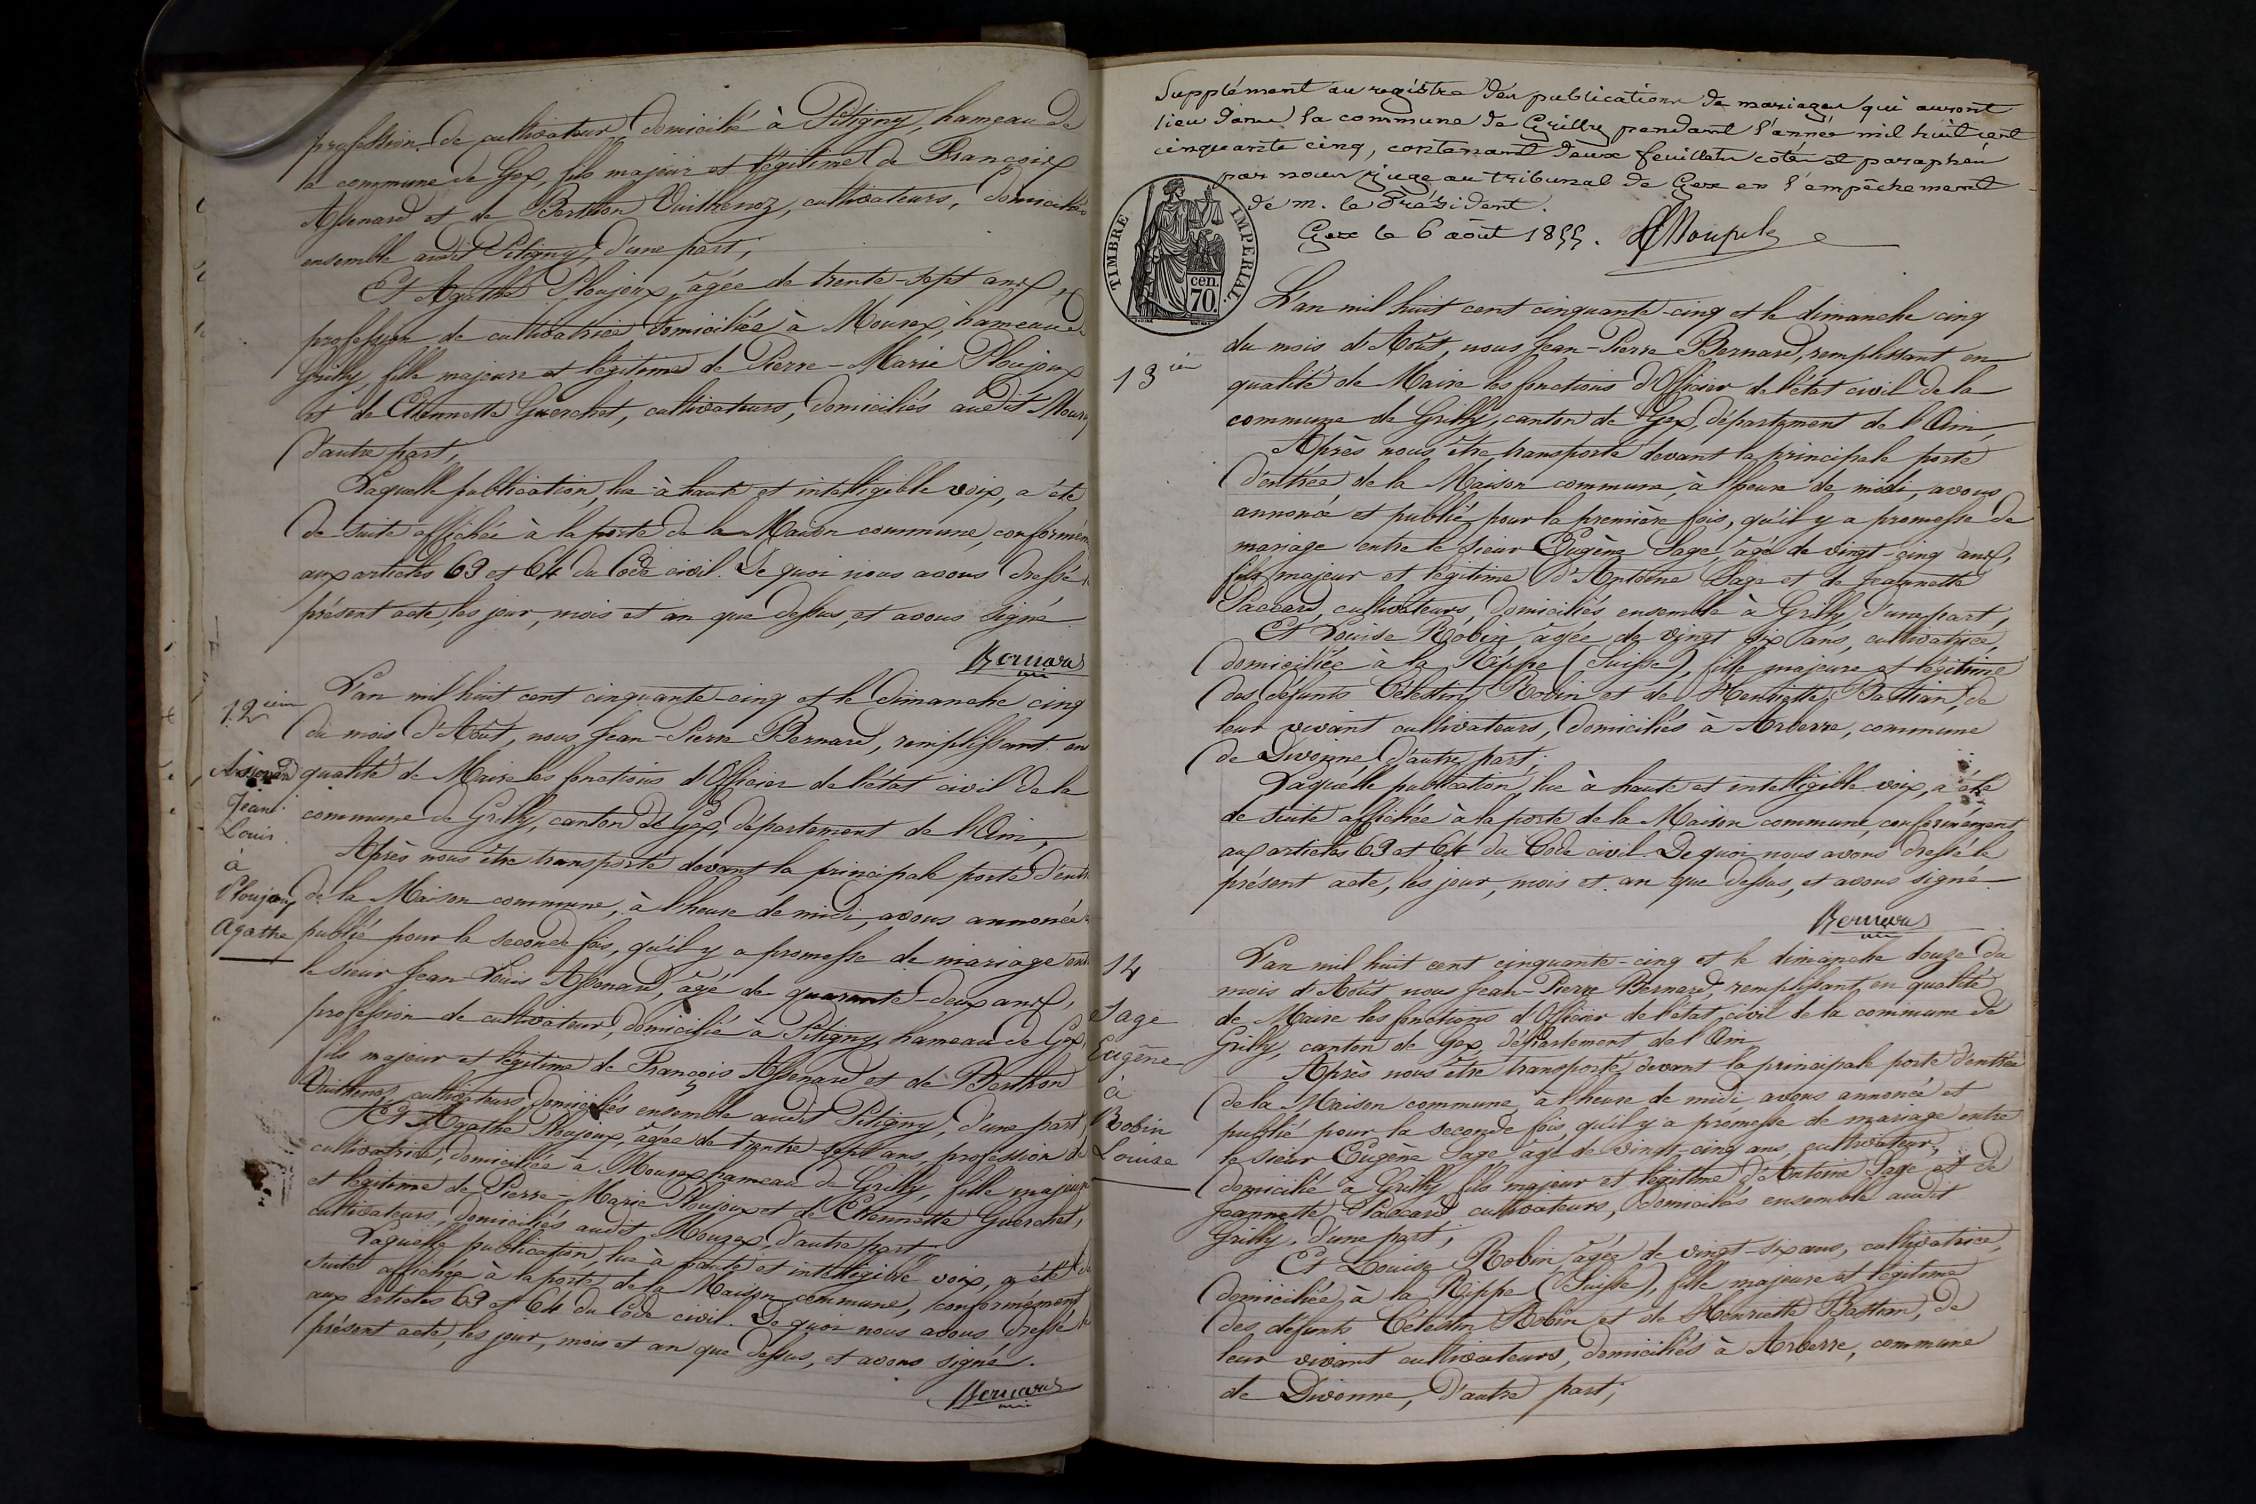 profession de cultivateur, domicilié à Pitigny, hameau de
la commune de Gex, fils majeur et légitime de François
Assenard et de Berthon Vuithenoz, cultivateurs, domiciliés
ensemble audit Pitigny, d'une part;
Et Agathe Ploujoux, âgée de trente-sept ans,
profession de cultivatrice domiciliée à Mourex, hameau de
Grilly, fille majeure et légitime de Pierre-Marie Ploujoux
et de Etiennette Guerchet, cultivateurs, domiciliés audit Mourex
d'autre part,
Laquelle publication, lue à haute et intelligible voix, a été
de suite affichée à la porte de la Maison commune, conformém
aux articles 63 et 64 du Code civil. De quoi nous avons dressé le
présent acte, les jour, mois et an que dessus, et avons signé
Bernard
12ième
Assenard
Jean
Louis
à
Ploujoux
Agathe
L'an mil huit cent cinquante-cinq et le Dimanche cinq
du mois d'Août, nous Jean-Pierre Bernard, remplissant en
qualité de Maire les fonctions d'Officier de l'état civil de la
commune de Grilly, canton de Gex, département de l'Ain,
Après nous être transporté devant la principale porte d'entr
de la Maison commune, à l'heure de midi, avons annoncé
publié pour la seconde fois, qu'il y a promesse de mariage ent
le sieur Jean-Louis Assenard, âgé de quarante-deux ans,
profession de cultivateur, domicilié à Pitigny, hameau de Gex
fils majeur et légitime de François Assenard et de Berthon
Vuithenoz, cultivateurs, domiciliés ensemble audit Pitigny, d'une part
Et Agathe Ploujoux, âgée de trente sept ans, profession de
cultivatrice, domiciliée à Mourex hameau de Grilly, fille majeure
et légitime de Pierre-Marie Ploujoux et de Etiennette Guerchet,
cultivateurs, domiciliés audit Mourex, d'autre part
Laquelle publication, lue à haute et intelligible voix, a été de
suite affichée à la porte de la Maison commune, conformément
aux articles 63 et 64 du Code civil. De quoi nous avons dressé le
présent acte, les jour, mois et an que dessus, et avons signé.
Bernard
Supplément au registre des publications de mariages qui auront
lieu dans la commune de Grilly pendant l'année mil huit cent
cinquante cinq, contenant deux feuillets cotés et paraphés
par nous juge au tribunal de Gex en l'empêchement
de m. le Président.
Gex le 6 août 1855.
TIMBRE IMPERIAL.
cen.
70.
13ième
L'an mil huit cent cinquante-cinq et le dimanche cinq
du mois d'Août, nous Jean-Pierre Bernard, remplissant en
qualité de Maire les fonctions d'Officier de l'état civil de la
commune de Grilly, canton de Gex, département de l'Ain,
Après nous être transporté devant la principale porte
d'entrée de la Maison commune, à l'heure de midi, avons
annoncé et publié pour la première fois, qu'il y a promesse de
mariage entre le sieur Eugène Sage, âgé de vingt-cinq ans,
fils majeur et légitime d'Antoine Sage et de Jeannette
Paccard, cultivateurs, domiciliés ensemble à Grilly, d'une part,
Et Louise Robin, âgée de vingt six ans, cultivatrice,
domiciliée à la Rippe (Suisse), fille majeure et légitime
des défunts Célestin Robin et de Henriette Bastian, de
leur vivant cultivateurs, domiciliés à Arberre, commune
de Divonne, d'autre part;
Laquelle publication, lue à haute et intelligible voix, a été
de suite affichée à la porte de la Maison commune, conformément
aux articles 63 et 64 du Code civil. De quoi nous avons dressé le
présent acte, les jour, mois et an que dessus, et avons signé
Bernard
14
Sage
Eugène
à
Robin
Louise
L'an mil huit cent cinquante-cinq et le dimanche douze du
mois d'Août nous Jean-Pierre Bernard, remplissant en qualité
de Maire les fonctions d'Officier de l'état civil de la commune de
Grilly, canton de Gex, département de l'Ain
Après nous être transporté devant la principale porte d'entrée
de la Maison commune, à l'heure de midi, avons annoncé et
publié pour la seconde fois, qu'il y a promesse de mariage entre
le sieur Eugène Sage âgé de vingt-cinq ans, cultivateur,
domicilié à Grilly, fils majeur et légitime d'Antoine Sage et de
Jeannette Paccard cultivateurs, domiciliés ensemble audit
Grilly, d'une part;
Et Louise Robin, âgée de vingt-six ans, cultivatrice,
domiciliée à la Rippe (Suisse), fille majeure et légitime
des défunts Célestin Robin et de Henriette Bastian, de
leur vivant cultivateurs, domiciliés à Arberre, commune
de Divonne, d'autre part;